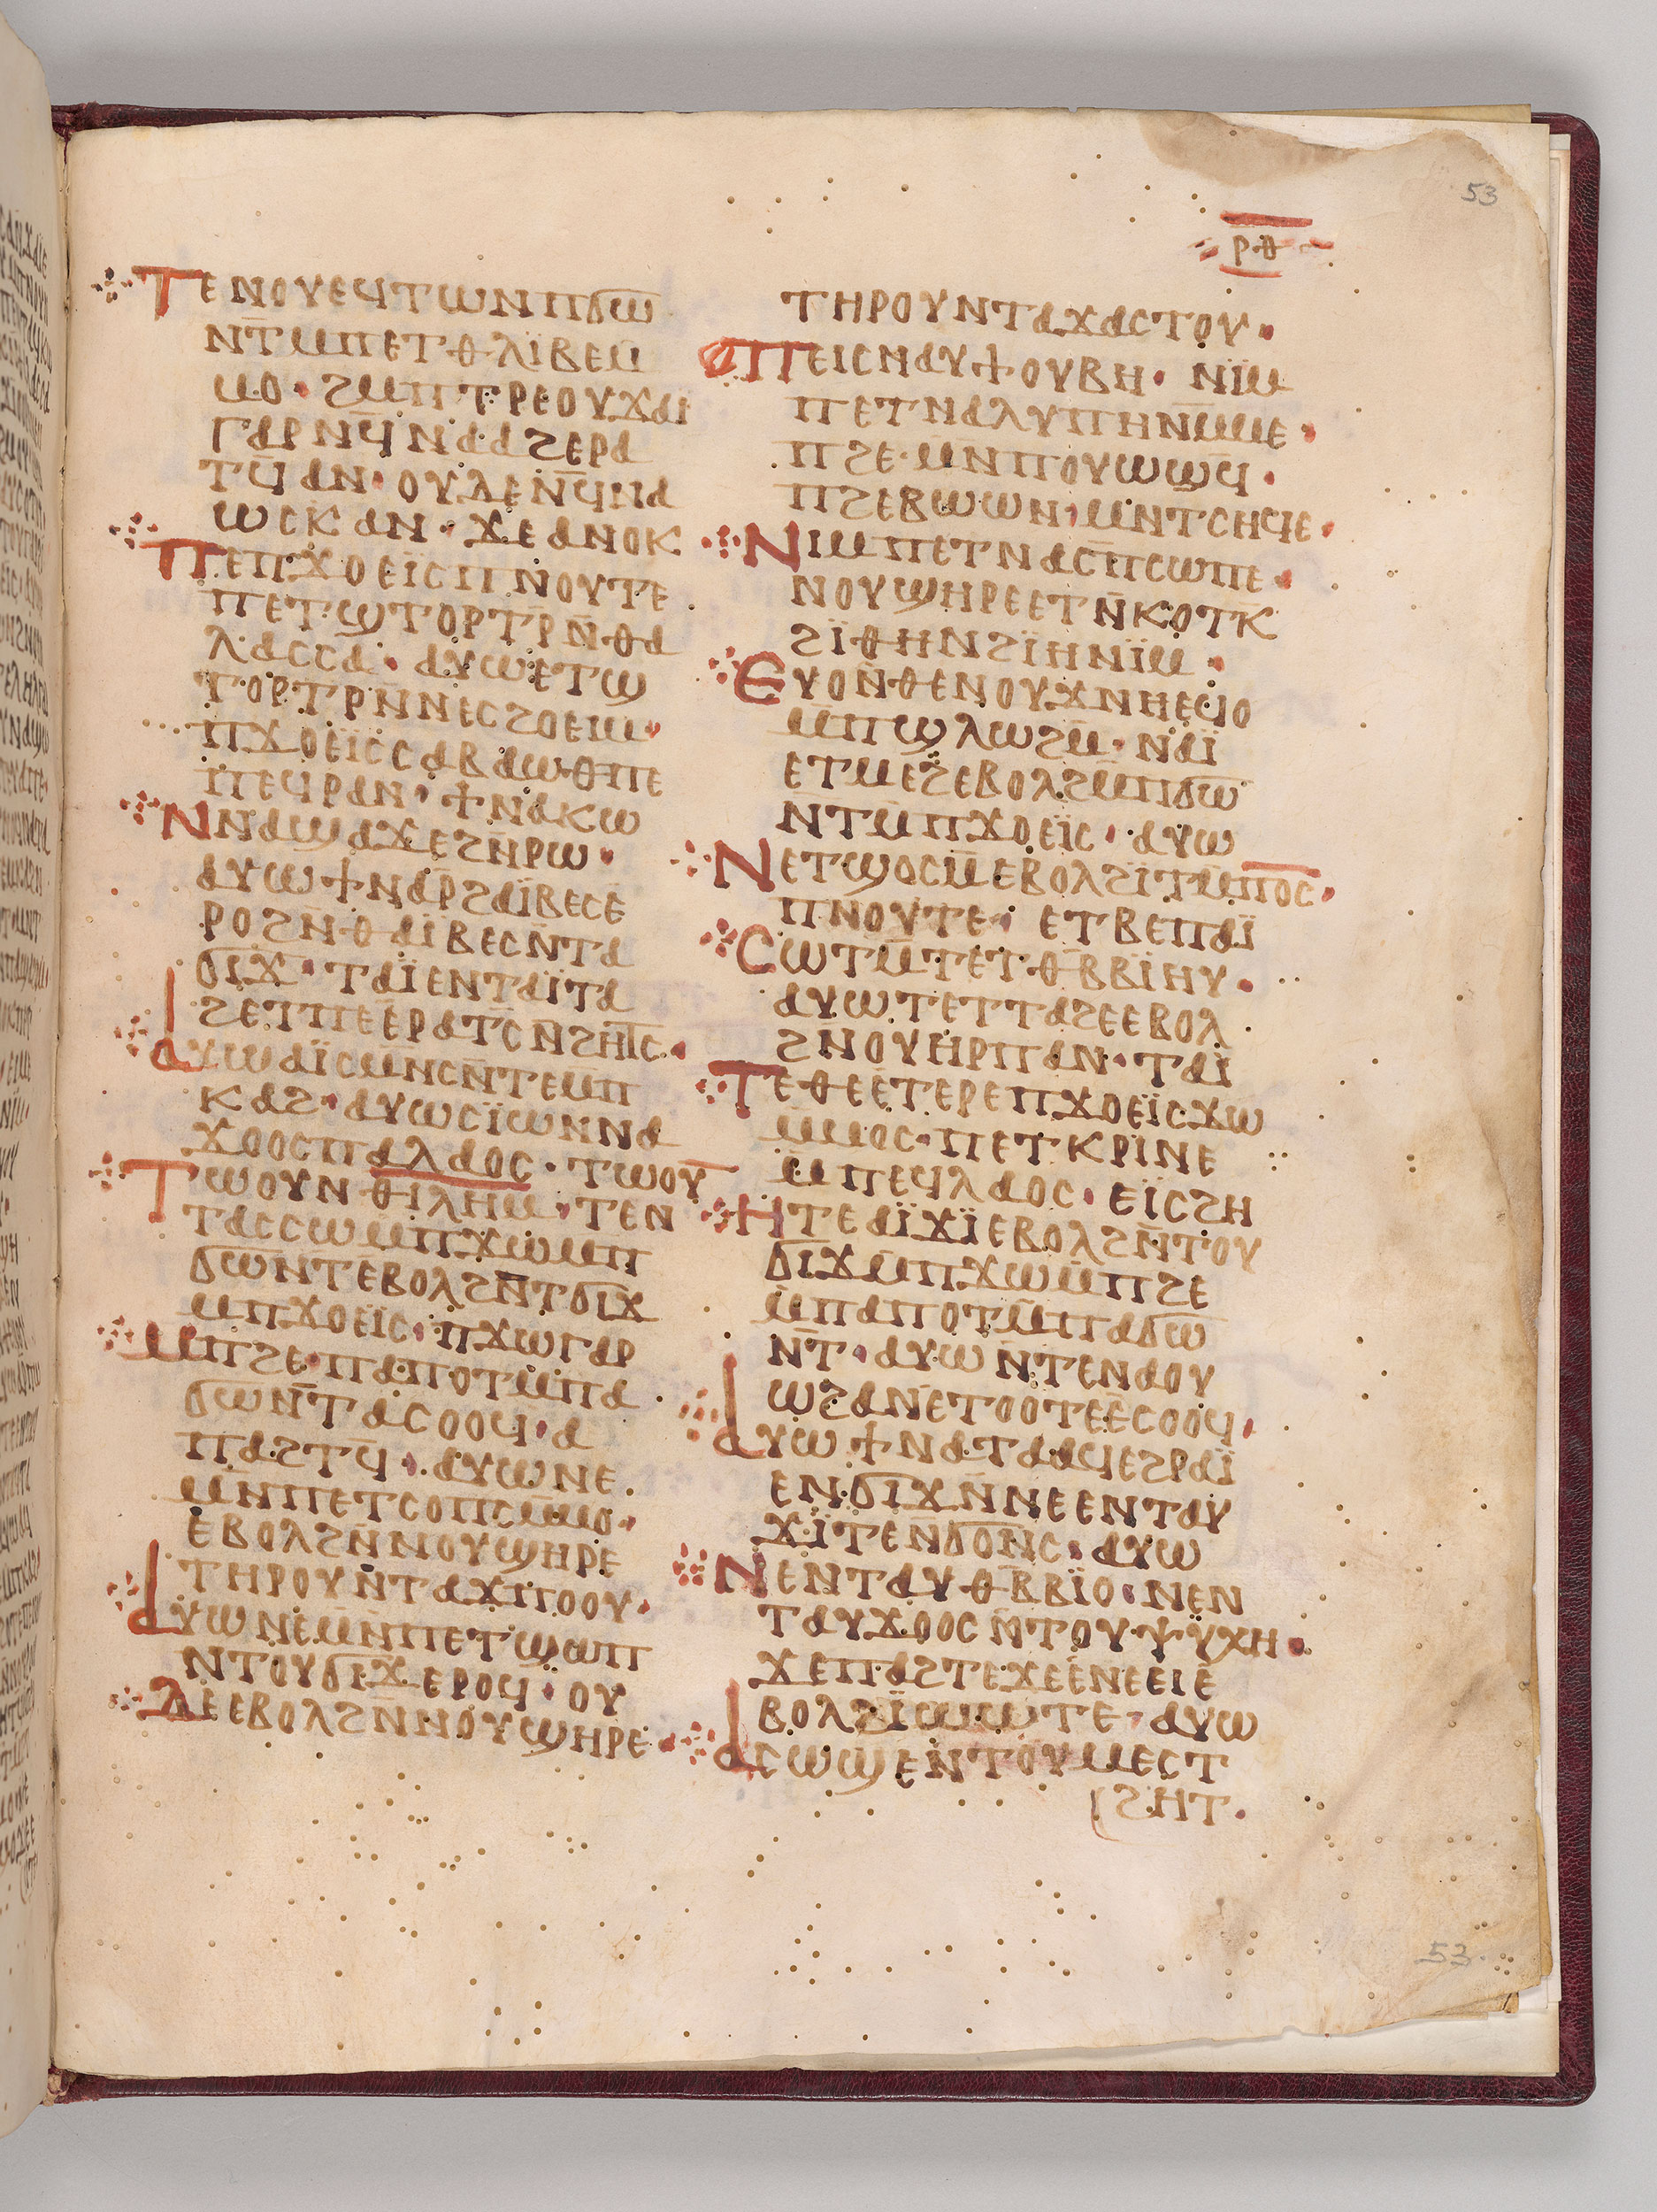 53
ⲣⲑ
ⲧⲉⲛⲟⲩⲉϥⲧⲱⲛⲡϭⲱ
ⲛⲧⲙⲡⲉⲧⲑⲗⲓⲃⲉⲙ
ⲙⲟ· ϩⲙⲡⲧⲣⲉⲟⲩϫⲁⲓ
ⲅⲁⲣⲛ̄ϥⲛⲁⲁϩⲉⲣⲁ
ⲧϥ̄ⲁⲛ· ⲟⲩⲇⲉⲛ̄ϥⲛⲁ
ⲱⲥⲕⲁⲛ· ϫⲉⲁⲛⲟⲕ
ⲡⲉⲡϫⲟⲉⲓⲥⲡⲛⲟⲩⲧⲉ
ⲡⲉⲧϣⲧⲟⲣⲧⲣ̄ⲛ̄ⲑⲁ
ⲗⲁⲥⲥⲁ· ⲁⲩⲱⲉⲧϣ
ⲧⲟⲣⲧⲣ̄ⲛ̄ⲛⲉⲥϩⲟⲉⲓⲙ·
ⲡϫⲟⲉⲓⲥⲥⲁⲃⲁⲱⲑⲡⲉ
ⲡⲉϥⲣⲁⲛ· ϯⲛⲁⲕⲱ
ⲛⲛⲁϣⲁϫⲉϩⲛ̄ⲣⲱ·
ⲁⲩⲱϯⲛⲁⲣ̄ϩⲁⲓ̈ⲃⲉⲥⲉ
ⲣⲟϩⲛ̄ⲑⲁⲓ̈ⲃⲉⲥⲛ̄ⲧⲁ
ϭⲓϫ· ⲧⲁⲓ̈ⲉⲛⲧⲁⲓ̈ⲧⲁ
ϩⲉⲧⲡⲉⲉⲣⲁⲧⲥ̄ⲛϩⲏⲧⲥ·
ⲁⲩⲱⲁⲓ̈ⲥⲙⲛⲥⲛ̄ⲧⲉⲙⲡ
ⲕⲁϩ· ⲁⲩⲱⲥⲓ̈ⲱⲛⲛⲁ
ϫⲟⲟⲥⲡⲁⲗⲁⲟⲥ· ⲧⲱⲟⲩ̄
ⲧⲱⲟⲩⲛⲑⲓⲗⲏⲙ· ⲧⲉⲛ
ⲧⲁⲥⲥⲱⲙⲡϫⲱⲙⲡ
ϭⲱⲛⲧⲉⲃⲟⲗϩⲛ̄ⲧϭⲓϫ
ⲙⲡϫⲟⲉⲓ̈ⲥ· ⲡϫⲱⲅⲁⲣ
ⲙⲡϩⲉ· ⲡⲁⲡⲟⲧⲙ̄ⲡⲁ
ϭⲱⲛⲧⲁⲥⲟⲟϥ· ⲁ
ⲡⲁϩⲧϥ̄· ⲁⲩⲱⲛⲉ
ⲙⲛ̄ⲡⲉⲧⲥⲟⲡⲥⲙ̄ⲙⲟ·
ⲉⲃⲟⲗϩⲛ̄ⲛⲟⲩϣⲏⲣⲉ
ⲧⲏⲣⲟⲩⲛ̄ⲧⲁϫⲡⲟⲟⲩ·
ⲁⲩⲱⲛⲉⲙⲛ̄ⲡⲉⲧϣⲱⲡ
ⲛⲧⲟⲩϭⲓϫⲉⲣⲟϥ· ⲟⲩ
ⲇⲉⲉⲃⲟⲗϩⲛ̄ⲛⲟⲩϣⲏⲣⲉ
ⲧⲏⲣⲟⲩⲛⲧⲁϫⲁⲥⲧⲟⲩ·
ⲡⲉⲓⲥⲛⲁⲩϯⲟⲩⲃⲏ· ⲛⲓ̈ⲙ
ⲡⲉⲧⲛⲁⲗⲩⲡⲏⲛⲙ̄ⲙⲉ·
ⲡϩⲉ· ⲙⲛ̄ⲡⲟⲩⲱϣϥ·
ⲡϩⲉⲃⲱⲱⲛ· ⲙⲛ̄ⲧⲥⲏϥⲉ·
ⲛⲓⲙⲡⲉⲧⲛⲁⲥⲡ̄ⲥⲱⲡⲉ·
ⲛⲟⲩϣⲏⲣⲉⲉⲧⲛ̄ⲕⲟⲧⲕ
ϩⲓ̈ⲑⲏⲛϩⲓ̈ⲏⲛⲓ̈ⲙ·
ⲉⲩⲟⲛ̄ⲑⲉⲛⲟⲩⲭⲛⲏⲉϥⲟ
ⲙⲡϣⲗⲱϩⲙ̄· ⲛⲁⲓ̈
ⲉⲧⲙⲉϩⲉⲃⲟⲗϩⲙ̄ⲡϭⲱ
ⲛⲧⲙ̄ⲡϫⲟⲉⲓ̈ⲥ· ⲁⲩⲱ
ⲛⲉⲧϣⲟⲥⲙ̄ⲉⲃⲟⲗϩⲓ̈ⲧⲙ̄ⲡⲟ̄ⲥ̄·
ⲡⲛⲟⲩⲧⲉ· ⲉⲧⲃⲉⲡⲁⲓ̈
ⲥⲱⲧⲙ̄ⲧⲉⲧⲑⲃ̄ⲃⲓ̈ⲏⲩ·
ⲁⲩⲱⲧⲉⲧⲧⲁϩⲉⲉⲃⲟⲗ
ϩⲛ̄ⲟⲩⲏⲣⲡⲁⲛ· ⲧⲁⲓ̈
ⲧⲉⲑⲉⲉⲧⲉⲣⲉⲡϫⲟⲉⲓ̈ⲥϫⲱ
ⲙⲙⲟⲥ· ⲡⲉⲧⲕⲣⲓ̈ⲛⲉ
ⲙ̄ⲡⲉϥⲗⲁⲟⲥ· ⲉⲓ̈ⲥϩⲏ
ⲏⲧⲉⲁⲓ̈ϫⲓ̈ⲉⲃⲟⲗϩⲛ̄ⲧⲟⲩ
ϭⲓϫⲙⲡϫⲱⲙ̄ⲡϩⲉ
ⲙ̄ⲡⲁⲡⲟⲧⲙ̄ⲡⲁϭⲱ
ⲛⲧ· ⲁⲩⲱⲛ̄ⲧⲉⲛⲁⲟⲩ
ⲱϩⲁⲛ̄ⲉⲧⲟⲟⲧⲉⲉ̄ⲥⲟⲟϥ·
ⲁⲩⲱϯⲛⲁⲧⲁⲁϥⲉϩⲣⲁⲓ̈
ⲉⲛϭⲓϫⲛ̄ⲛⲉⲉⲛⲧⲁⲩ
ϫⲓ̈ⲧⲉⲛ̄ϭⲟⲛⲥ· ⲁⲩⲱ
ⲛⲉⲛⲧⲁⲩⲑⲃ̄ⲃⲓ̈ⲟ· ⲛⲉⲛ
ⲧⲁⲩϫⲟⲟⲥⲛ̄ⲧⲟⲩⲯⲩ̈ⲭⲏ·
ϫⲉⲡⲁϩⲧⲉϫⲉⲉ̄ⲛⲉⲉⲓⲉ̄
ⲃⲟⲗϩⲓ̈ⲱⲱⲧⲉ· ⲁⲩⲱ
ⲁⲥⲱϣⲉⲛⲧⲟⲩⲙⲉⲥⲧ
ϩⲏⲧ·
53